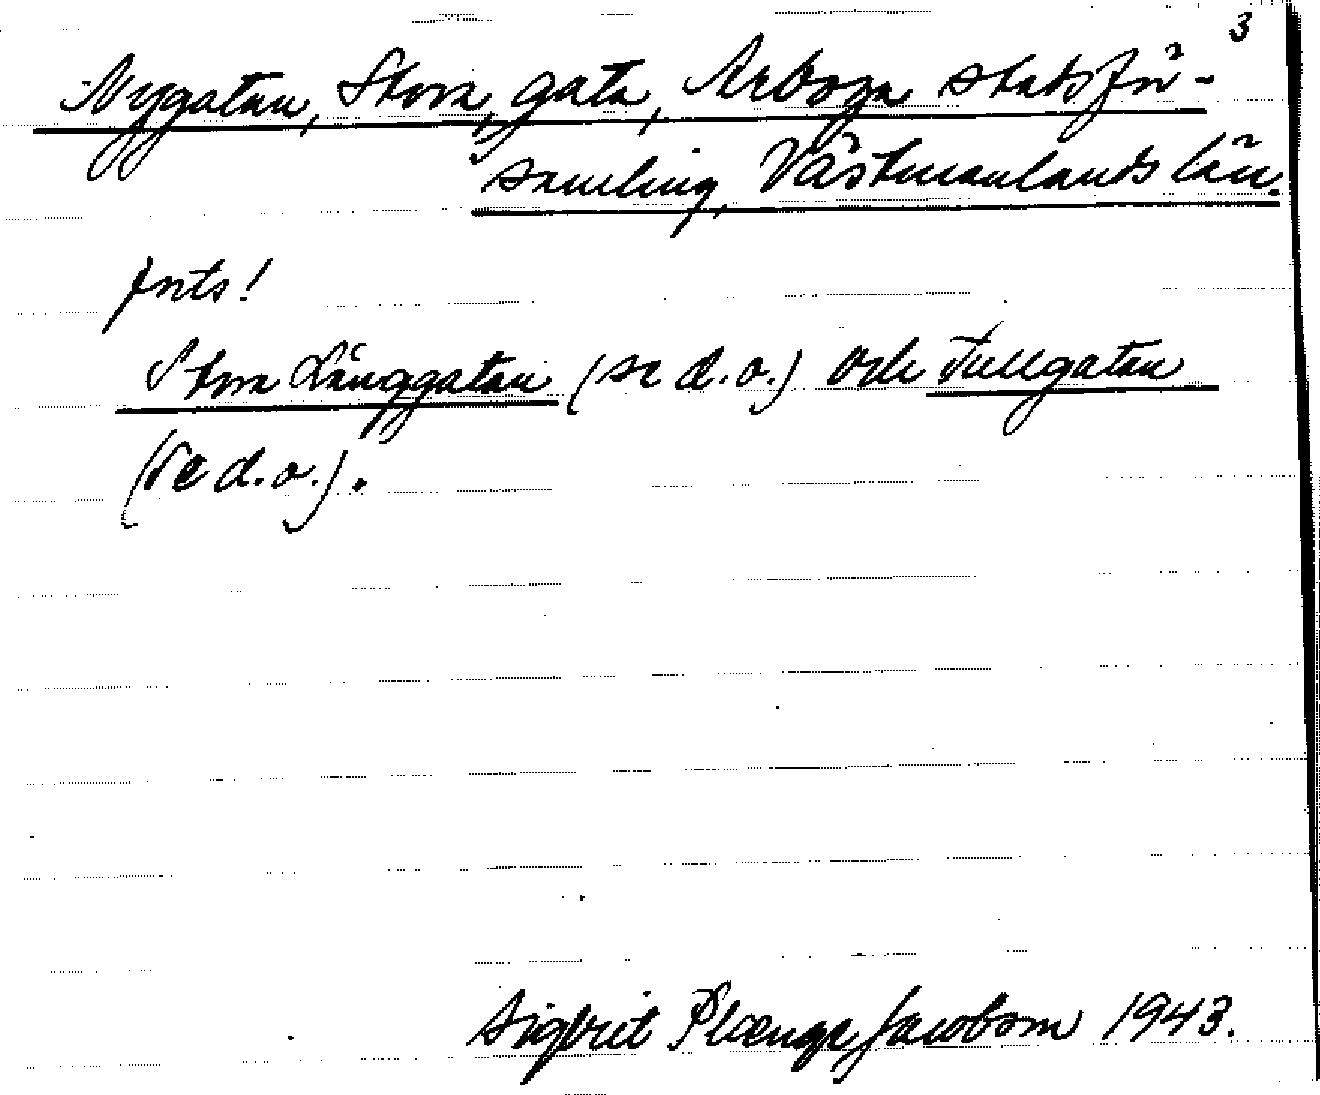 3
Nygatan, Stora, gata, Arboga stadsför-
samling, Västmanlands län.
forts!
Stora Långgatan (se d.o.) och Tullgatan
(se d.o.).
Sigfrid Plænge Jacobson 1943.